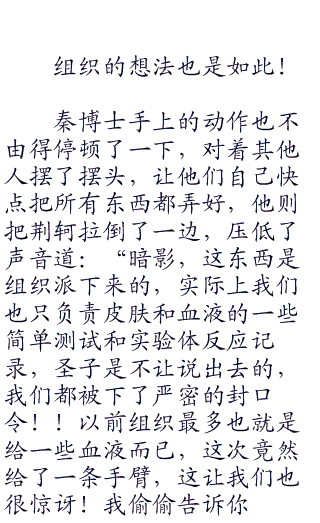 组织的想法也是如此！
秦博士手上的动作也不
由得停顿了一下，对着其他
人摆了摆头，让他们自己快
点把所有东西都弄好，他则
把荆轲拉倒了一边，压低了
声音道：“暗影，这东西是
组织派下来的，实际上我们
也只负责皮肤和血液的一些
简单测试和实验体反应记
录，圣子是不让说出去的，
我们都被下了严密的封口
令！！以前组织最多也就是
给一些血液而已，这次竟然
给了一条手臂，这让我们也
很惊讶！我偷偷告诉你